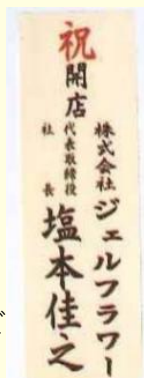 祝
開店
株式会社 ジェルフラワー
代表取締役
社長
塩本佳之